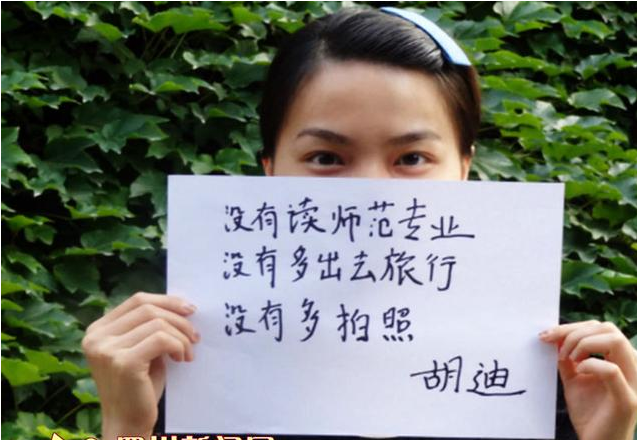 没有读师范专业
没有多出去旅行
没有多拍照
胡迪